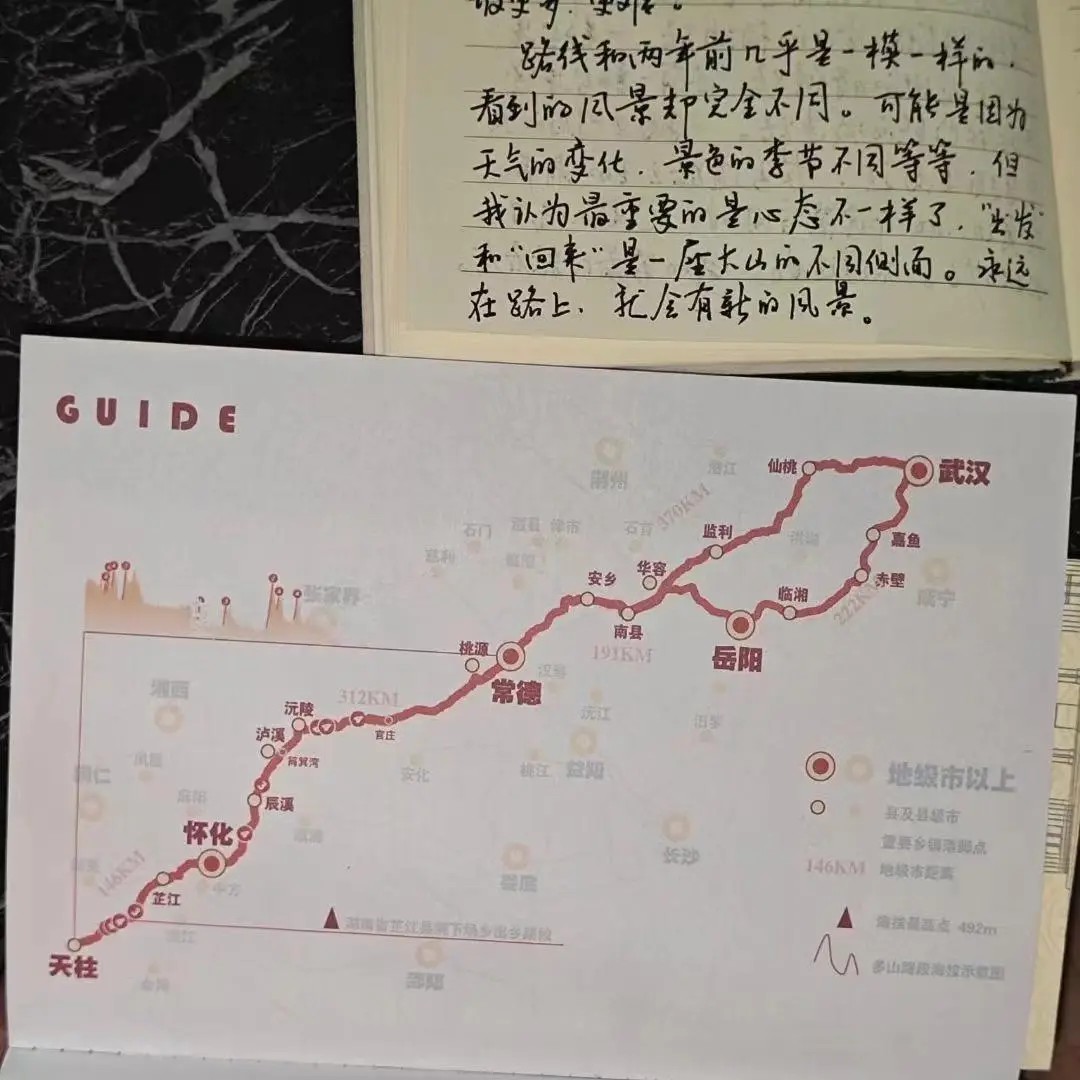 路线和两年前几乎是一模一样的，
看到的风景却完全不同。可能是因为
天气的变化，景色的季节不同等等，但
我认为最重要的是心态不一样了，“出发”
和“回来”是一座大山的不同侧面。永远
在路上，就会有新的风景。
GUIDE
仙桃
武汉
荆州
潜江
370KM
石门
澧县
津市
石首
监利
洪湖
嘉鱼
慈利
华容
安乡
临湘
赤壁
咸宁
张家界
南县
222KM
191KM
岳阳
桃源
常德
汉寿
湘西
312KM
沅陵
官庄
沅江
汨罗
泸溪
筲箕湾
凤凰
安化
桃江
益阳
铜仁
辰溪
地级市以上
县及县级市
怀化
长沙
重要乡镇落脚点
146KM
芷江
中方
娄底
146KM 地级市距离
海拔最高点 492m
天柱
邵阳
多山路段海拔示意图